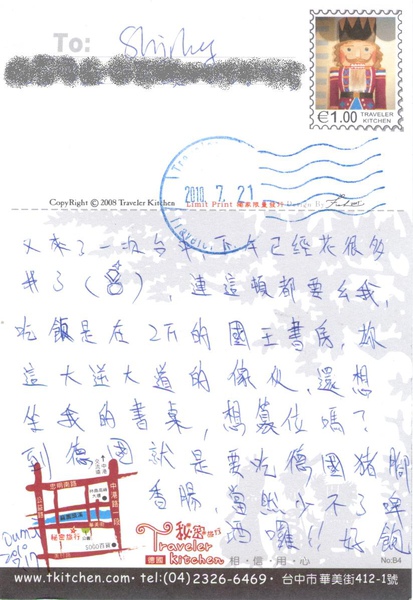 To: Shirley
€1.00 TRAVELER KITCHEN
2010 7 21
CopyRight © 2008 Traveler Kitchen Limit Print 獨家限量發行 Design By
又來了一次台中,下午已經花很多
錢了( ),連這頓都要么我,
吃飯是在2F的國王書房,妳
這大逆大道的傢伙,還想
坐我的書桌,想篡位嗎?
到德國就是要吃德國豬腳
香腸,當然少不了啤
酒囉!! 好飽
忠明南路
中港路一段
公益路
秘密旅行
5000百貨
秘密旅行
Traveler
德國 kitchen
相‧信‧用‧心
No:B4
www.tkitchen.com‧tel:(04)2326-6469‧台中市華美街412-1號